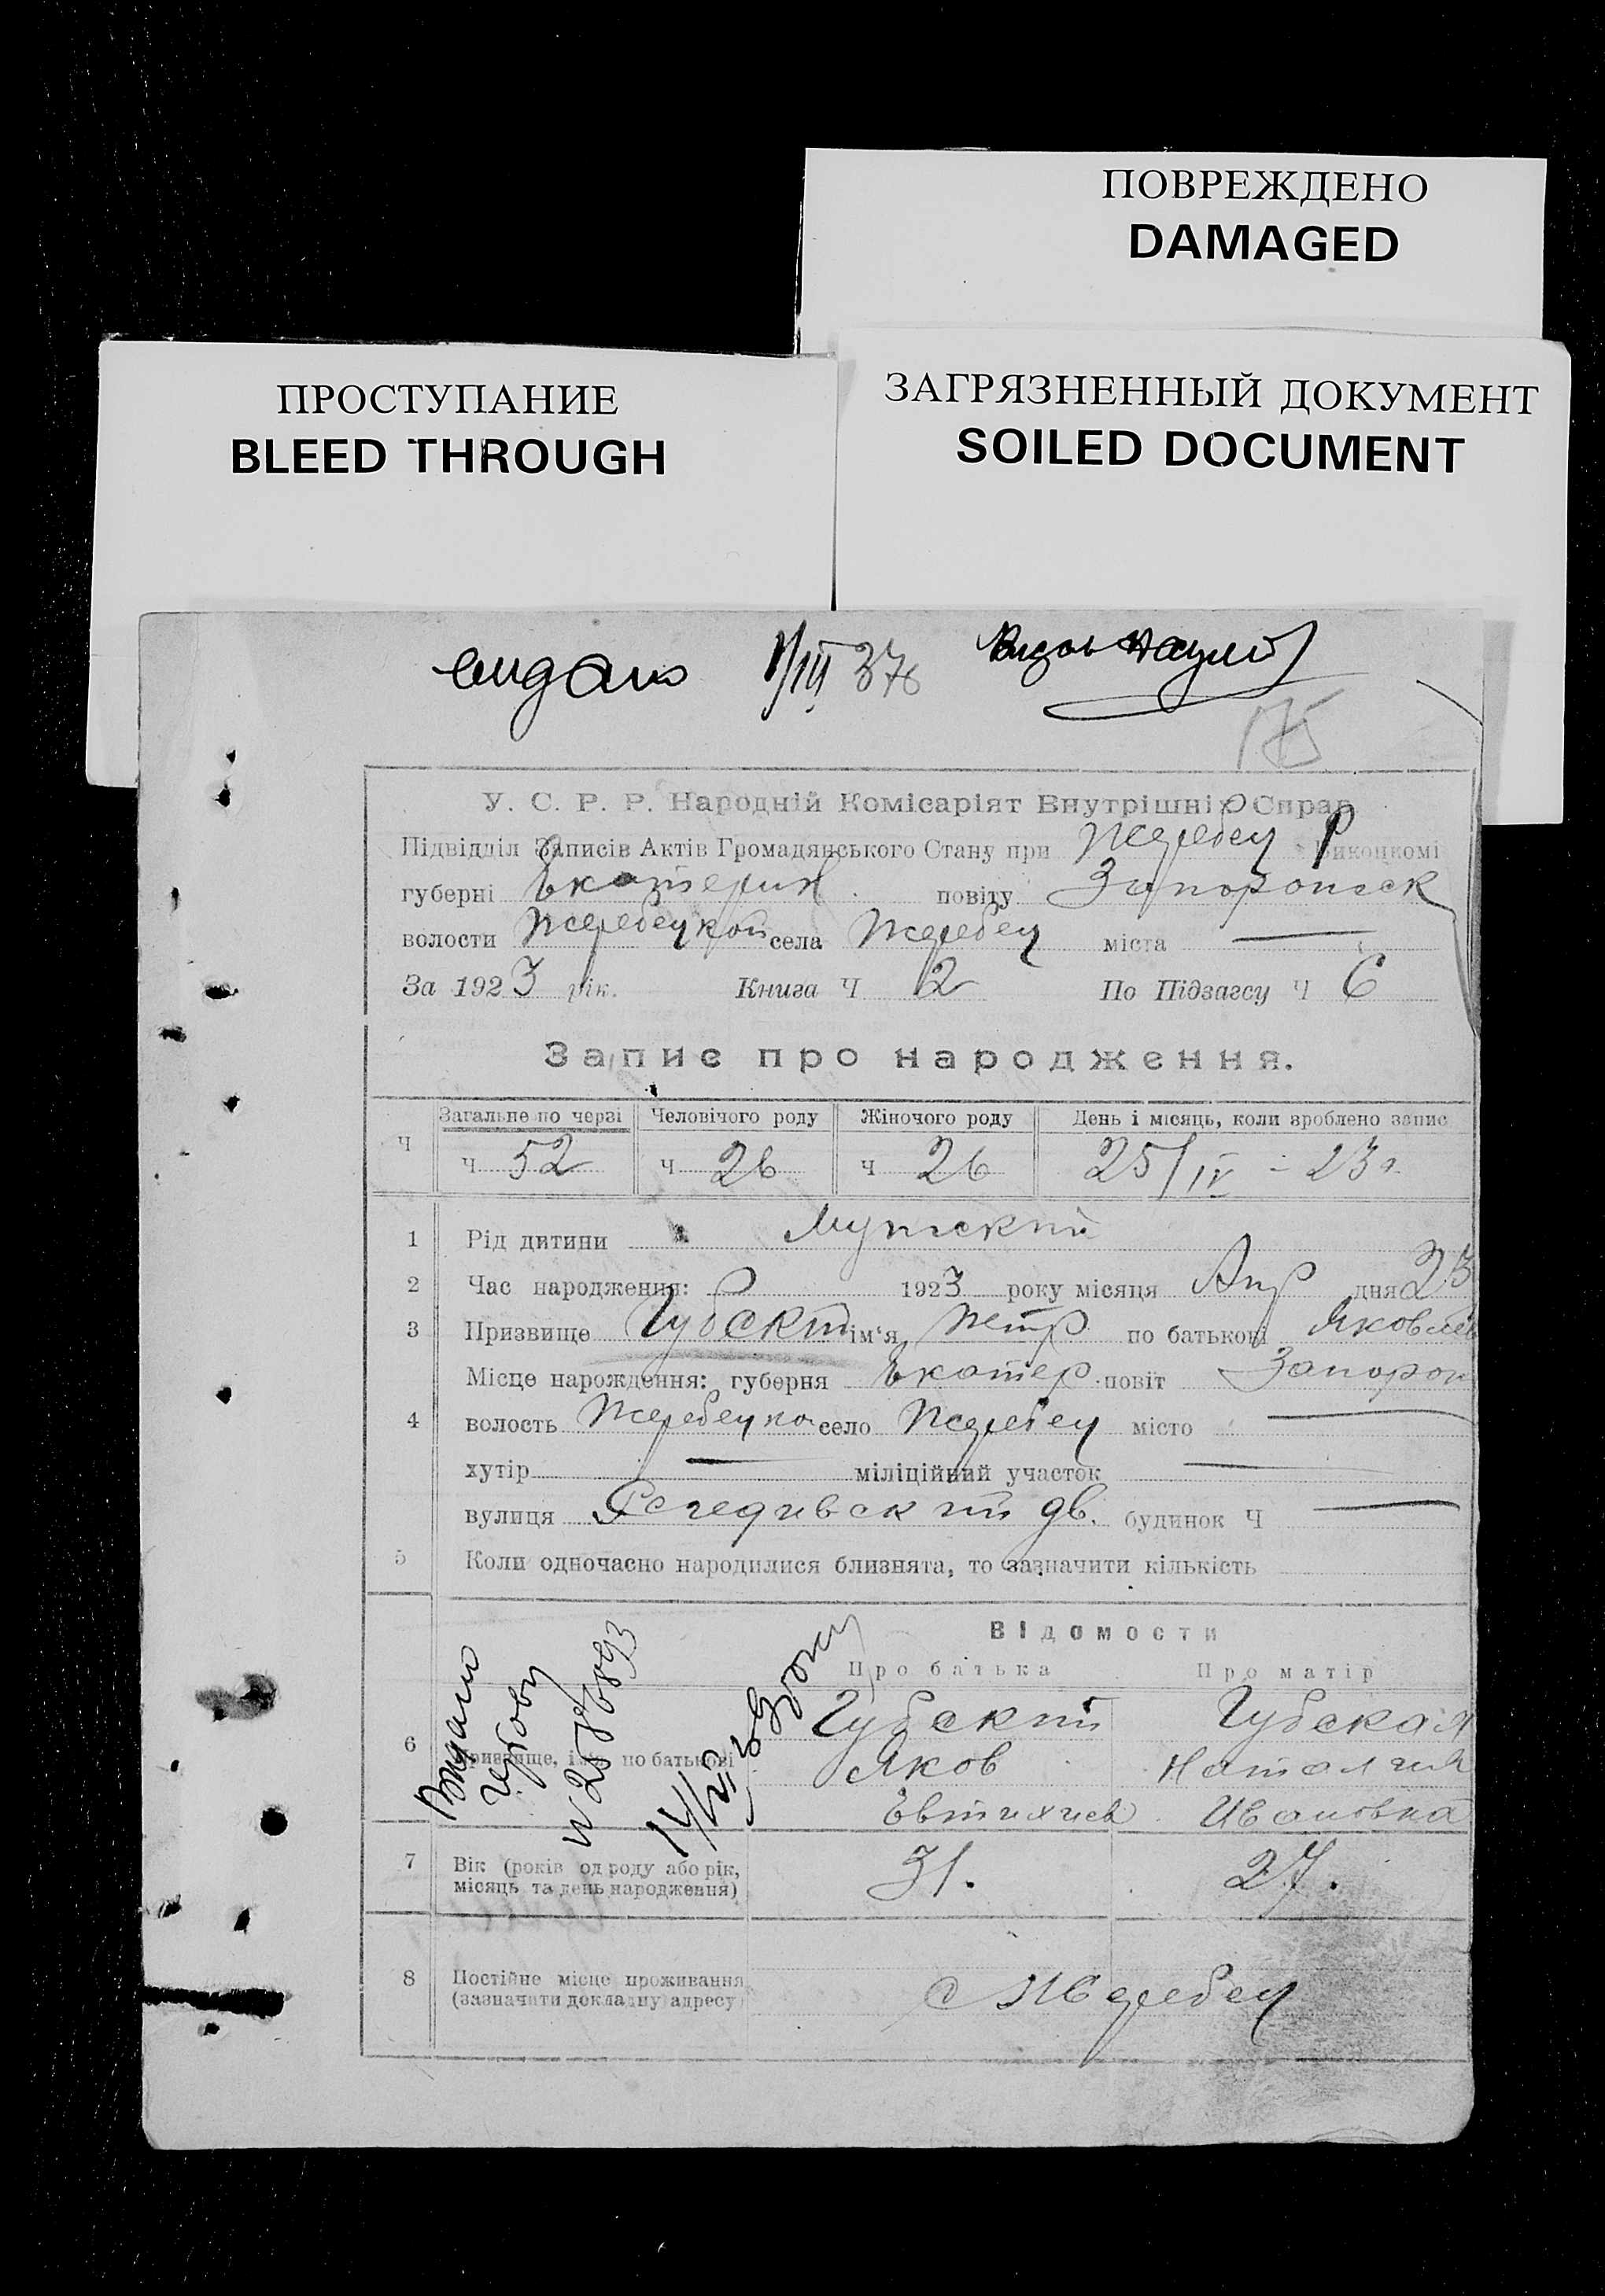 ПОВРЕЖДЕНО
DAMAGED
ПРОСТУПАНИЕ
BLEED THROUGH
ЗАГРЯЗНЕННЫЙ ДОКУМЕНТ
SOILED DOCUMENT
видано 1/III 37г
У. С. Р. Р. Народній Комісаріят Внутрішніх Справ
Підвідділ Записів Актів Громадянського Стану при Жеребец Р Виконкомі
губерні Екатерин повіту Запорожск
волости Жеребецкой села Жеребец міста —
За 1923 рік. Книга Ч 2 По Підзагсу Ч 6
Запис про народження.
Ч Загальне по черзі Человічого роду Жіночого роду День і місяць, коли зроблено запис
Ч 52 Ч 26 Ч 26 25/IV - 23 г.
1 Рід дитини Мужский
2 Час народження: 1923 року місяця Апр дня 23
3 Призвище Губский ім'я Петр по батькові Яковлев
Місце нарождення: губерня Екатер повіт Запорож
4 волость Жеребецкой село Жеребец місто —
хутір — міліційний участок —
вулиця дв. будинок Ч —
5 Коли одночасно народилися близнята, то зазначити кількість
Відомости
Про батька Про матір
Видано
6 Призвище, ім'я, по батькові
Губский Губская
Яков Наталия
Евтихиев Ивановна
7 Вік (років од роду або рік, місяць та день народження) 31. 27.
8 Постійне місце проживання (зазначити докладну адресу) с Жеребец